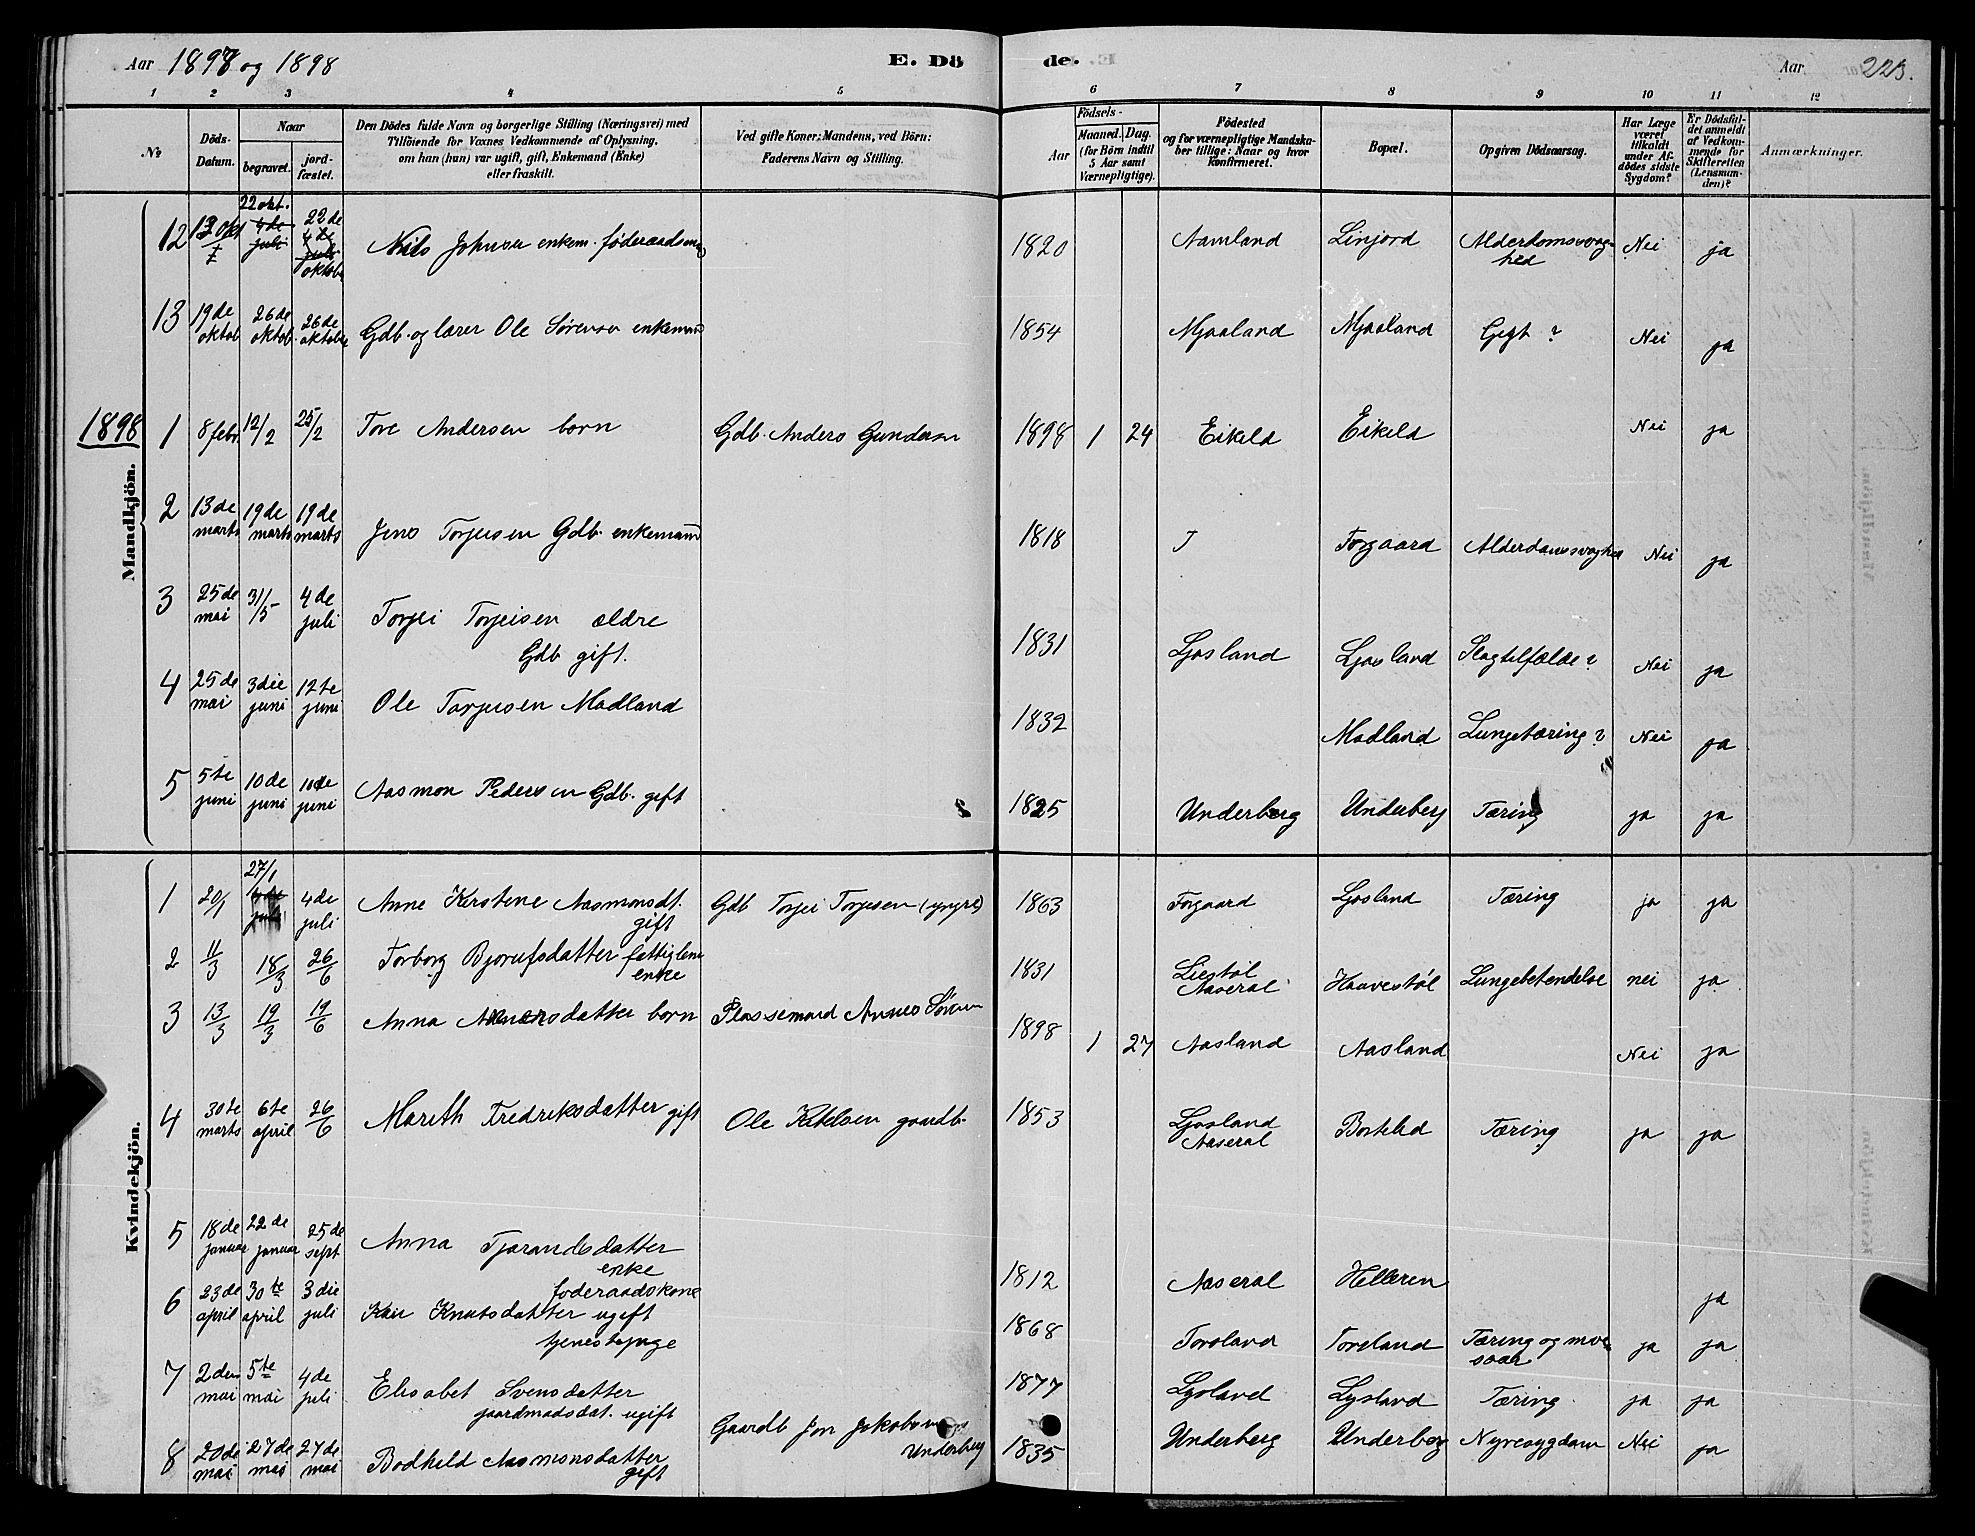 Aar 1897 og 1898 E. Dö de. Aar 223.
1 2 3 4 5 6 7 8 9 10 11 12
№ Döds-Datum. Naar begravet. jord-fæstet. Den Dödes fulde Navn og borgerlige Stilling (Næringsvei) med Tilföiende for Voxnes Vedkommende af Oplysning, om han (hun) var ugift, gift, Enkemand (Enke) eller fraskilt. Ved gifte Koner: Mandens, ved Börn: Faderens Navn og Stilling. Födsels- Aar Maaned. Dag. (for Börn indtil 5 Aar samt Værnepligtige). Födested og for værnepligtige Mandska-ber tillige: Naar og hvor Konfirmeret. Bopæl. Opgiven Dödsaarsag. Har Læge været tilkaldt under Af-dödes sidste Sygdom? Er Dödsfal-det anmeldt af Vedkom-mende for Skifteretten (Lensman-den)? Anmærkninger.
Mandkjön.
12 13 okt 22 okt. 4de juli 22de 4de juli oktobr Nils Johnsen enkem. føderaadsmand 1820 Aamland Linjord Alderdomssvag-hed Nei ja
13 19de oktob 26de oktob. 26de oktober Gdb. og lærer Ole Sørensen enkemand 1854 Mjaaland Mjaaland Gigt ? Nei ja
1898
1 8 febr. 12/2 25/2 Tore Andersen barn Gdb. Anders Gundersen 1898 1 24 Eikeld Eikeld Nei ja
2 13de marts 19de marts 19de marts Jens Torjusen Gdb. enkemand 1818 Forgaard Alderdomssvaghed Nei ja
3 25de mai 31/5 4de juli Torjei Torjeisen ældre
Gdb gift. 1831 Ljosland Ljosland Slagtilfælde? Nei ja
4 25de mai 3die juni 12te juni Ole Torjusen Madland 1832 Madland Lungetæring? Nei ja
5 5te juni 10de juni 10de juni Aasmon Pedersen Gdb. gift 1825 Underberg Underberg Tæring ja ja
Kvindekjön.
1 20/1 27/1 4de juli Anne Kirstene Aasmonsdt.
gift Gdb Torjei Torjesen (yngre) 1863 Forgaard Ljosland Tæring ja ja
2 11/3 18/3 26/6 Torborg Bjorufsdatter fattiglem
enke 1831 Liestøl Aaseral Haavestøl Lungebetendelse nei ja
3 13/3 19/3 19/6 Anna datter barn Plassemand 1898 1 27 Aasland Aasland Nei ja
4 30te marts 6te april 26/6 Mareth Fredriksdatter gift Ole Ketelsen gaardb. 1853 Ljosland Aaseral Tæring ja ja
5 18de januar 22de januar 25de sept Anna Tjarandsdatter
enke
føderaadskone 1812 Aaseral Helleren ja
6 23de april 30te april 3die juli Kari Knutsdatter ugift
tjenestepige 1868 Toroland Toroland Tæring og ja ja
7 2den mai 5te mai 4de juli Elisabet Svensdatter
gaardmadsdat. ugift 1877 Lysland Lysland Tæring ja ja
8 20de mai 27de mai 27de mai Bodkeld Aasmonsdatter
gift Gaardb Jon Jakobsen
Underberg 1835 Underberg Underberg Nyresygdom Nei ja